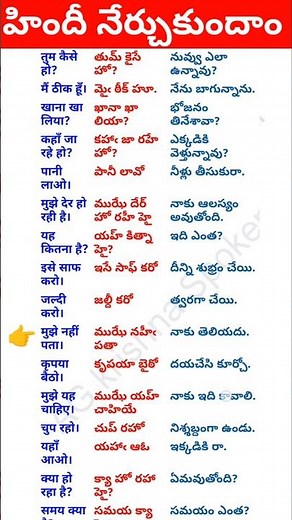 హిందీ నేర్చుకుందాం
तुम कैसे తుమ్ కైసే నువ్వు ఎలా
हो? హో? ఉన్నావు?
मैं ठीक हूँ। మైఁ ఠీక్ హూఁ. నేను బాగున్నాను.
खाना खा ఖానా ఖా భోజనం
लिया? లియా? తినేశావా?
कहाँ जा కహాఁ జా రహే ఎక్కడికి
रहे हो? హో? వెళ్తున్నావు?
पानी పానీ లావో నీళ్లు తీసుకురా.
लाओ।
मुझे देर हो ముఝే దేర్ నాకు ఆలస్యం
रही है। హో రహీ హై అవుతోంది.
यह యహ్ కిత్నా ఇది ఎంత?
कितना है? హై?
इसे साफ ఇసే సాఫ్ కరో దీన్ని శుభ్రం చేయి.
करो।
जल्दी జల్దీ కరో త్వరగా చేయి.
करो।
मुझे नहीं ముఝే నహీఁ నాకు తెలియదు.
पता। పతా
कृपया కృపయా బైఠో దయచేసి కూర్చో.
बैठो।
मुझे यह ముఝే యహ్ నాకు ఇది కావాలి.
चाहिए। చాహియే
चुप रहो। చుప్ రహో నిశ్శబ్దంగా ఉండు.
यहाँ యహాఁ ఆఓ ఇక్కడికి రా.
आओ।
क्या हो క్యా హో రహా ఏమవుతోంది?
रहा है? హై?
समय क्या సమయ క్యా సమయం ఎంత?